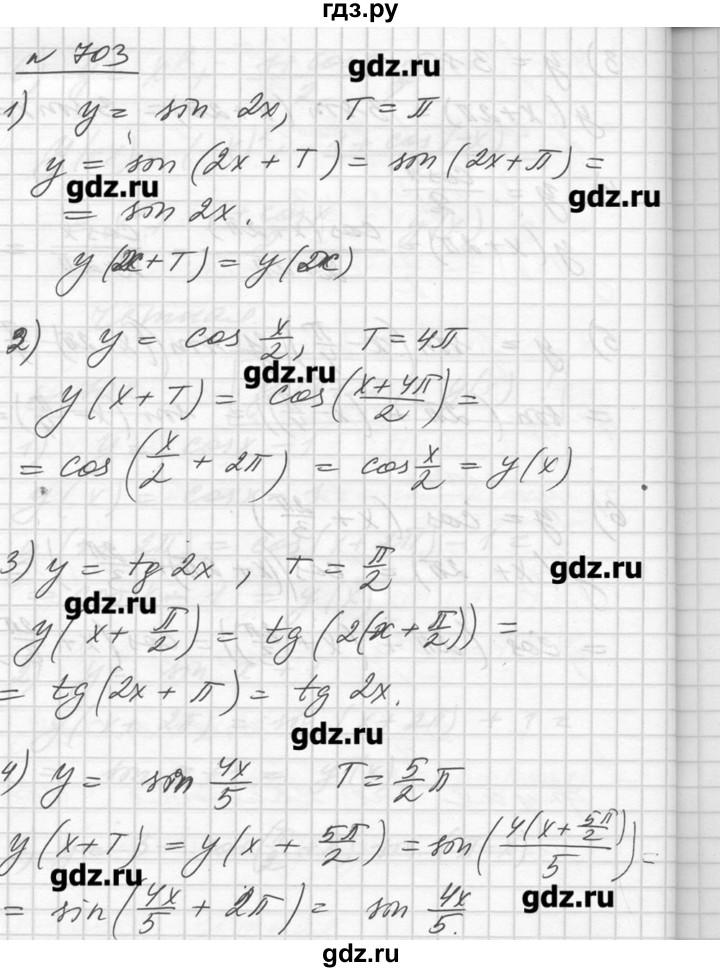 гдз.ру
№ 703
gdz.ru
1) y = sin 2x, T = π
y = sin (2x + T) = sin (2x + π) =
gdz.ru gdz.ru
= sin 2x.
y (2x + T) = y (2x)
2) y = cos x/2, T = 4π
gdz.ru
y (x + T) = cos ((x + 4π)/2) =
= cos (x/2 + 2π) = cos x/2 = y (x)
3) y = tg 2x, T = π/2
gdz.ru
gdz.ru
y (x + π/2) = tg (2(x + π/2)) =
= tg (2x + π) = tg 2x.
gdz.ru
4) y = sin 4x/5 T = 5/2 π
y (x + T) = y (x + 5π/2) = sin (4(x + 5π/2)/5) =
gdz.ru
gdz.ru
= sin (4x/5 + 2π) = sin 4x/5.
gdz.ru